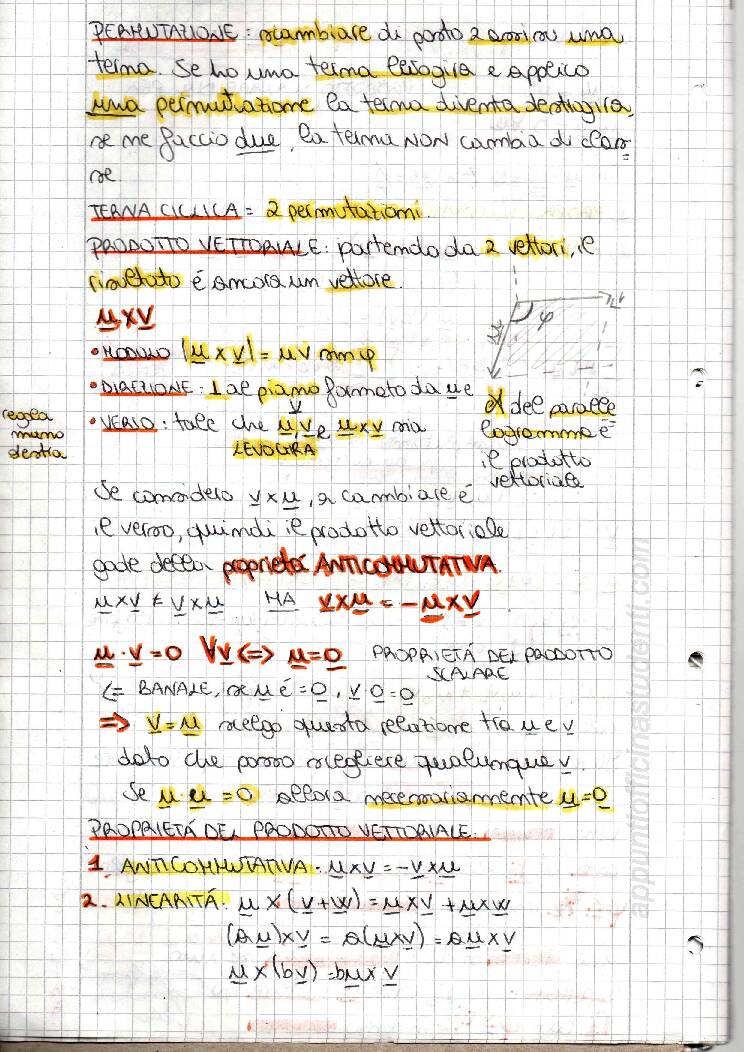 PERMUTAZIONE: scambiare di posto 2 assi su una
terna. Se ho una terna levogira e applico
una permutazione la terna diventa destrogira,
se ne faccio due, la terna NON cambia di clas-
se.
TERNA CICLICA = 2 permutazioni.
PRODOTTO VETTORIALE: partendo da 2 vettori, il
risultato é ancora un vettore.
u x v
• MODULO |u x v| = uv sin φ
• DIREZIONE: ⊥ al piano formato da u e
v
• VERSO: tale che u, v e u x v sia
LEVOGIRA
regola
mano
destra
u
v
φ
del paralle
logramma é
il prodotto
vettoriale
Se considero v x u, a cambiare é
il verso, quindi il prodotto vettoriale
gode della proprietá ANTICOMMUTATIVA.
u x v ≠ v x u MA v x u = - u x v
u · v = 0 ∀v <=> u = 0 PROPRIETÁ DEL PRODOTTO
SCALARE
<= BANALE, se u é = 0, v · 0 = 0
=> v = u scelgo questa relazione tra u e v
dato che posso scegliere qualunque v.
Se u · u = 0 allora necessariamente u = 0
PROPRIETÁ DEL PRODOTTO VETTORIALE:
1. ANTICOMMUTATIVA: u x v = - v x u
2. LINEARITÁ: u x (v + w) = u x v + u x w
(a u) x v = a(u x v) = a u x v
u x (b v) = b u x v
appuntiofficinastudenti.com